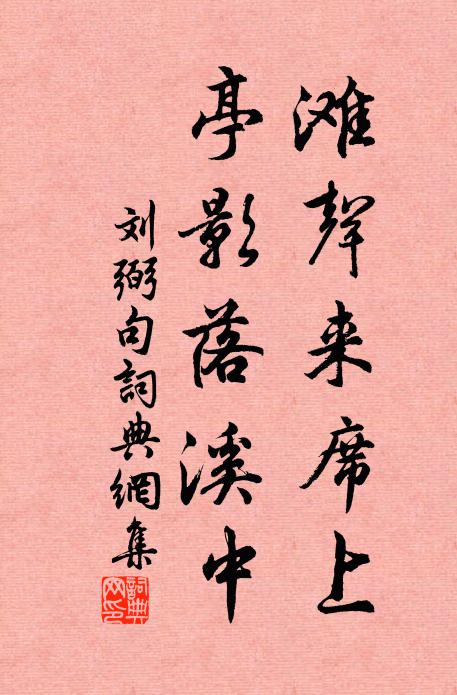 滩聲来席上
亭影落溪中
刘弼句詞典網集
詞典网印